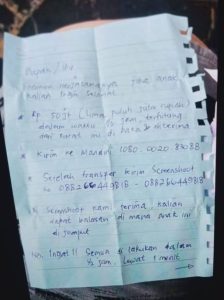 Bapak / Ibu
anak
kalian ingin selamat.
* Rp 50jt (lima puluh juta rupiah)
dalam waktu ½ jam, terhitung
dari surat ini di baca & diterima
* Kirim ke Mandiri 1080. 0020 83088
* Setelah transfer kirim Screenshoot
ke 0882 66449818 - 088266449818
* Screenshoot kami terima, kalian
dapat balasan di mana anak ini
di jemput
NB: Ingat!! Semua di lakukan dalam
½ jam. Lewat 1 menit